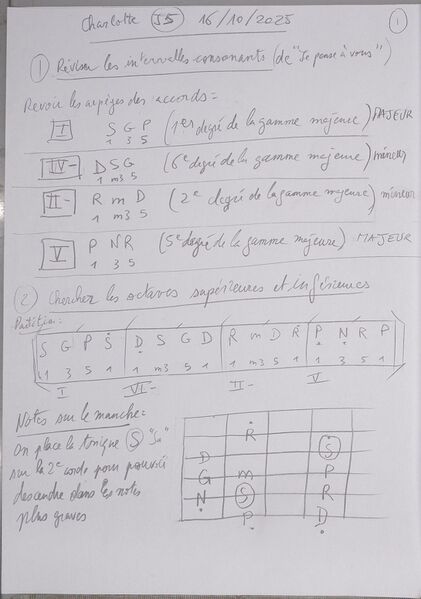 Charlotte S5 16/10/2025 1
1 Réviser les intervalles consonants (de "Je pense à vous")
Revoir les arpèges des accords =
I S G P (1er degré de la gamme majeure) MAJEUR
1 3 5
IV- D S G (6e degré de la gamme majeure) mineur
1 m3 5
II- R m D (2e degré de la gamme majeure) mineur
1 m3 5
V P N R (5e degré de la gamme majeure) MAJEUR
1 3 5
2 Chercher les octaves supérieures et inférieures
Partition:
S G P S D S G D R m D R P N R P
1 3 5 1 1 m3 5 1 1 m3 5 1 1 3 5 1
I VI- II- V
Notes sur le manche =
on place la tonique S "Sa"
sur la 2e corde pour pouvoir
descendre dans les notes
plus graves
R
D S
G m P
N S R
P D